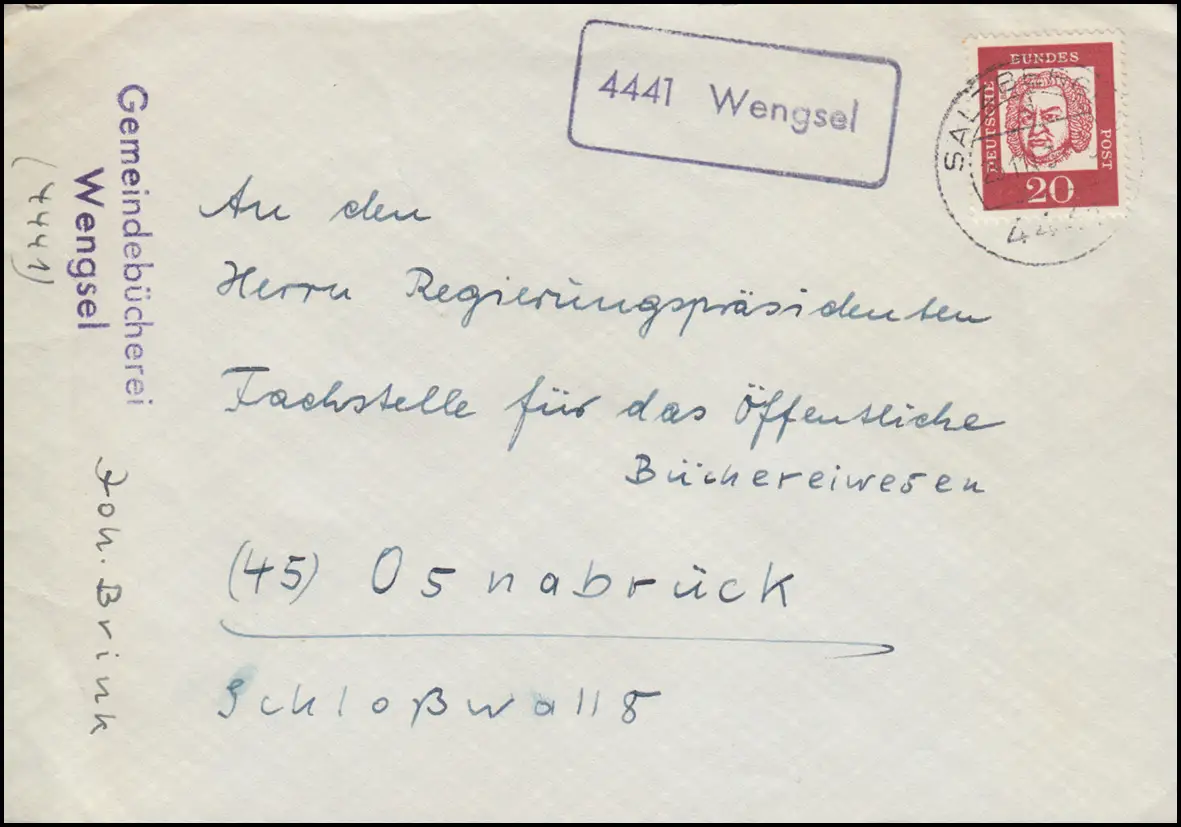 4441 Wengsel
DEUTSCHE
BUNDES
POST
20
Gemeindebücherei
Wengsel
(4441)
Joh. Brink
An den
Herrn Regierungspräsidenten
Fachstelle für das Öffentliche
Büchereiwesen
(45) Osnabrück
Schloßwall 8